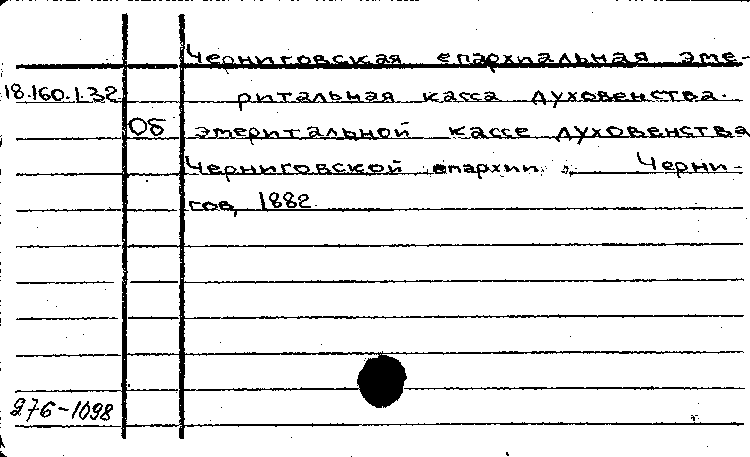 Черниговская епархиальная эме-
18.160.1.32 ритальная касса духовенства.
Об эмеритальной кассе духовенства
Черниговской епархии. Черни-
гов, 1882.
276-1098